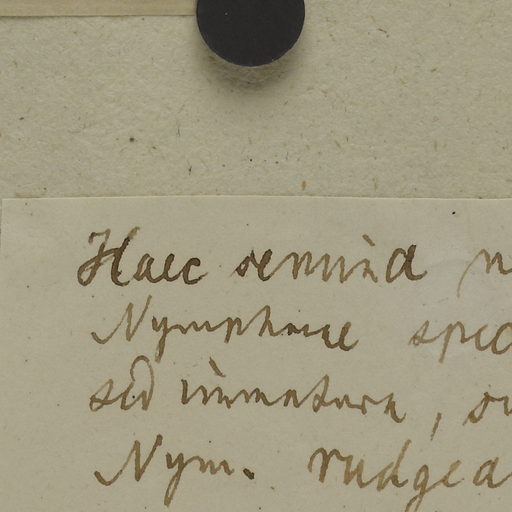 Haec semina n
Nymphaeae spec
sed immatura, su
Nym. rudgea